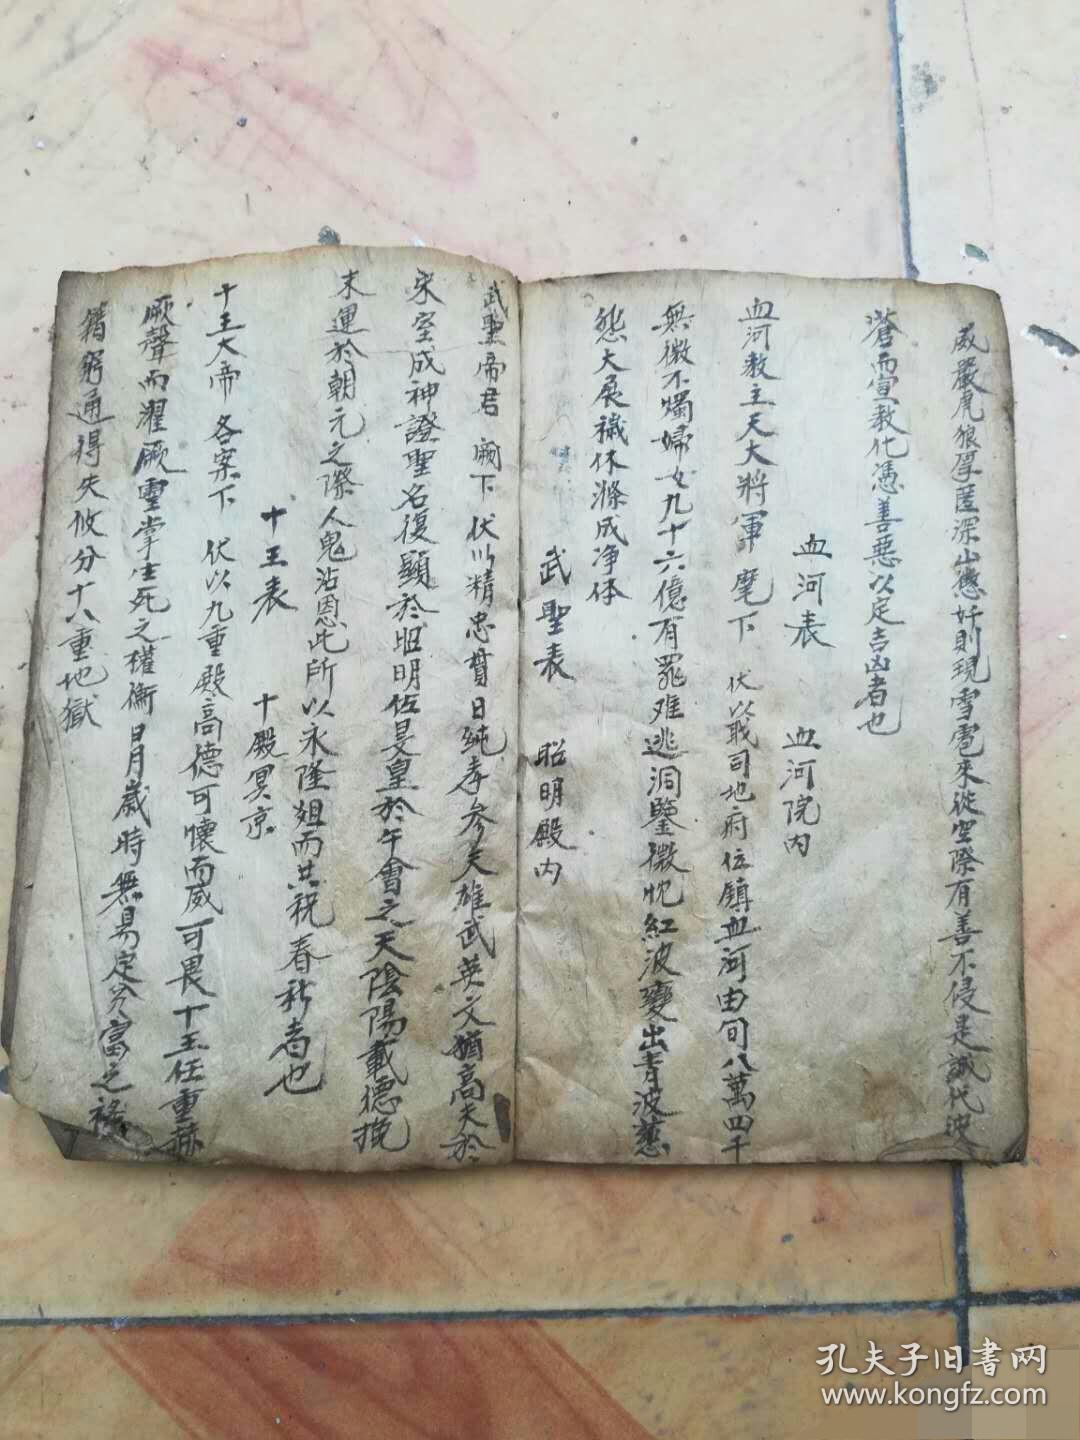 威嚴虎狼厚匿深山懲奸則現雪雹來從空際有善不侵是誠代波
蒼而宣教化憑善惡以定吉凶者也
血河表 血河院內
血河教主天大將軍 麾下 伏以職司地府位鎮血河由旬八萬四千
無微不燭婦女九十六億有罪难逃洞鑒微忱紅波變出青波慈
態大展穢体滌成净体
武聖表 昭明殿內
武聖帝君 闕下 伏以精忠貫日純孝參天雄武英文猶高夫於
宋室成神證聖名復顯於昭明佐旻皇於午會之天陰陽載德挽
末運於朝元之際人鬼沾恩此所以永隆俎而共祝春秋者也
十王表 十殿冥京
十王大帝 各案下 伏以九重殿高德可懷而威可畏十王任重赫
厥聲而濯厥靈掌生死之權衡日月歲時無易定貧富之祿
籍窮通得失攸分十八重地獄
孔夫子旧書网
www.kongfz.com